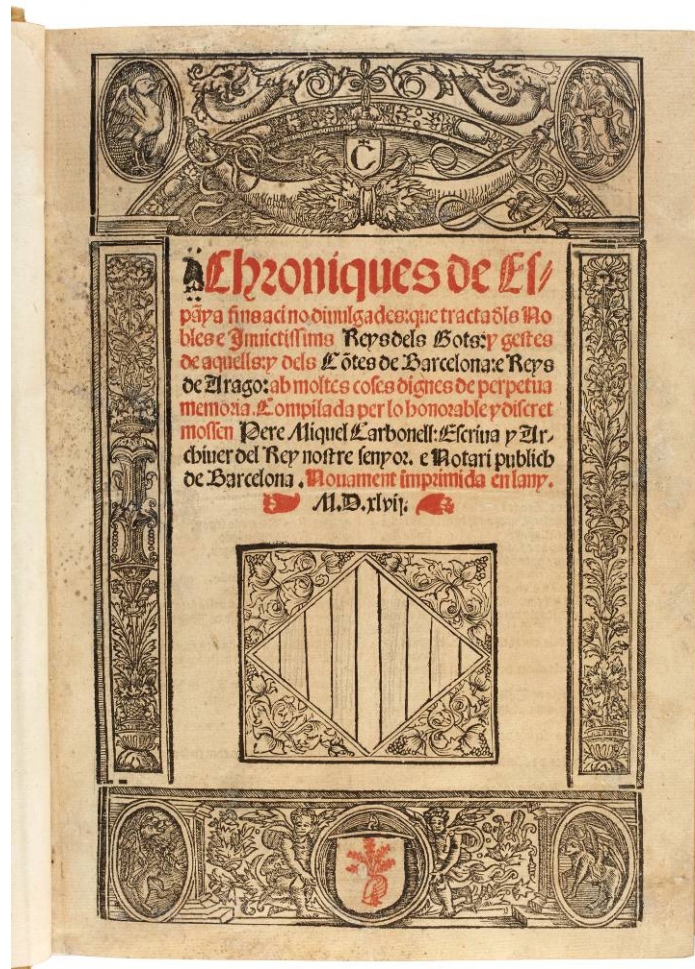 C̃
Chroniques de Es/
pãya fins aci no diuulgades: que tracta d̃ls No
bles e Inuictissims Reys dels Gots: y gestes
de aquells: y dels Cõtes de Barcelona: e Reys
de Arago: ab moltes coses dignes de perpetua
memoria. Compilada per lo honorable y discret
mossen Pere Miquel Carbonell: Escriua y Ar-
chiuer del Rey nostre senyor. e Notari publich
de Barcelona. Nouament imprimida en lany.
M.D.xlvij.